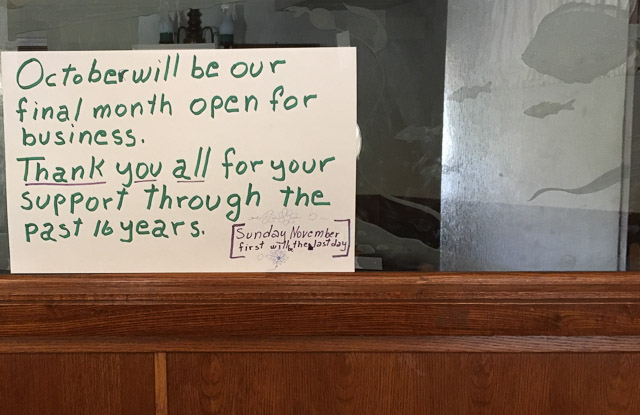 October will be our
final month open for
business.
Thank you all for your
support through the
past 16 years.
Sunday November
first will be the last day